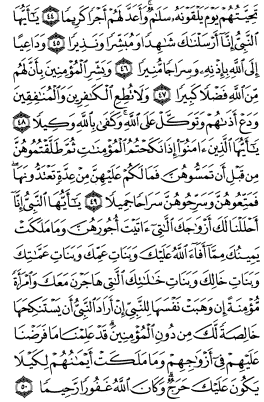 تَحِيَّتُهُمْ يَوْمَ يَلْقَوْنَهُۥ سَلَٰمٌ وَأَعَدَّ لَهُمْ أَجْرًا كَرِيمًا ٤٤ يَٰٓأَيُّهَا
ٱلنَّبِىُّ إِنَّآ أَرْسَلْنَٰكَ شَٰهِدًا وَمُبَشِّرًا وَنَذِيرًا ٤٥ وَدَاعِيًا
إِلَى ٱللَّهِ بِإِذْنِهِۦ وَسِرَاجًا مُّنِيرًا ٤٦ وَبَشِّرِ ٱلْمُؤْمِنِينَ بِأَنَّ لَهُم
مِّنَ ٱللَّهِ فَضْلًا كَبِيرًا ٤٧ وَلَا تُطِعِ ٱلْكَٰفِرِينَ وَٱلْمُنَٰفِقِينَ
وَدَعْ أَذَىٰهُمْ وَتَوَكَّلْ عَلَى ٱللَّهِ وَكَفَىٰ بِٱللَّهِ وَكِيلًا ٤٨
يَٰٓأَيُّهَا ٱلَّذِينَ ءَامَنُوٓا۟ إِذَا نَكَحْتُمُ ٱلْمُؤْمِنَٰتِ ثُمَّ طَلَّقْتُمُوهُنَّ
مِن قَبْلِ أَن تَمَسُّوهُنَّ فَمَا لَكُمْ عَلَيْهِنَّ مِنْ عِدَّةٍ تَعْتَدُّونَهَا
فَمَتِّعُوهُنَّ وَسَرِّحُوهُنَّ سَرَاحًا جَمِيلًا ٤٩ يَٰٓأَيُّهَا ٱلنَّبِىُّ إِنَّآ
أَحْلَلْنَا لَكَ أَزْوَٰجَكَ ٱلَّٰتِىٓ ءَاتَيْتَ أُجُورَهُنَّ وَمَا مَلَكَتْ
يَمِينُكَ مِمَّآ أَفَآءَ ٱللَّهُ عَلَيْكَ وَبَنَاتِ عَمِّكَ وَبَنَاتِ عَمَّٰتِكَ
وَبَنَاتِ خَالِكَ وَبَنَاتِ خَٰلَٰتِكَ ٱلَّٰتِى هَاجَرْنَ مَعَكَ وَٱمْرَأَةً
مُّؤْمِنَةً إِن وَهَبَتْ نَفْسَهَا لِلنَّبِىِّ إِنْ أَرَادَ ٱلنَّبِىُّ أَن يَسْتَنكِحَهَا
خَالِصَةً لَّكَ مِن دُونِ ٱلْمُؤْمِنِينَ قَدْ عَلِمْنَا مَا فَرَضْنَا
عَلَيْهِمْ فِىٓ أَزْوَٰجِهِمْ وَمَا مَلَكَتْ أَيْمَٰنُهُمْ لِكَيْلَا
يَكُونَ عَلَيْكَ حَرَجٌ وَكَانَ ٱللَّهُ غَفُورًا رَّحِيمًا ٥٠